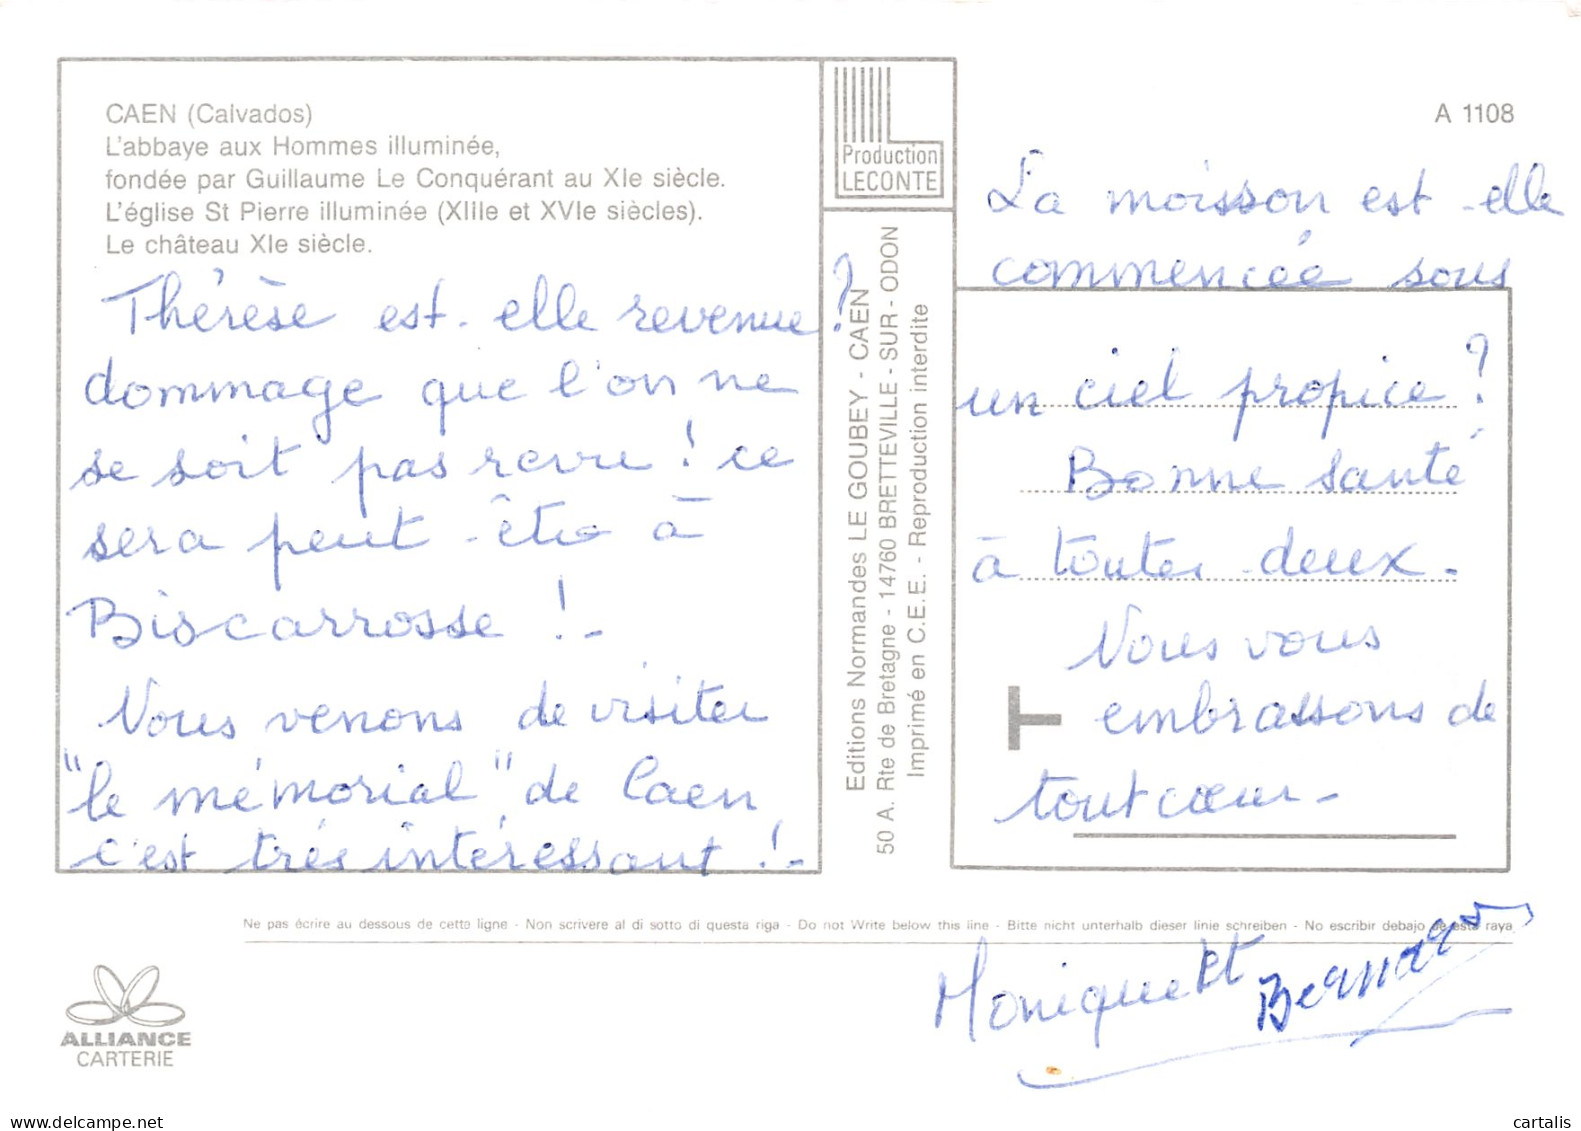 CAEN (Calvados)
L'abbaye aux Hommes illuminée,
fondée par Guillaume Le Conquérant au XIe siècle.
L'église St Pierre illuminée (XIIIe et XVIe siècles).
Le château XIe siècle.
Thérèse est-elle revenue?
dommage que l'on ne
se soit pas revu! ce
sera peut-être à
Biscarrosse!-
Nous venons de visiter
"le mémorial" de Caen
c'est très intéressant!-
Production
LECONTE
Editions Normandes LE GOUBEY - CAEN
50 A. Rte de Bretagne - 14760 BRETTEVILLE - SUR - ODON
Imprimé en C.E.E. - Reproduction interdite
A 1108
La moisson est-elle
commencée sous
un ciel propice?
Bonne santé
à toutes deux.
Nous vous
embrassons de
tout cœur-
Ne pas écrire au dessous de cette ligne - Non scrivere al di sotto di questa riga - Do not Write below this line - Bitte nicht unterhalb dieser linie schreiben - No escribir debajo de esta raya
Monique et Bernard
ALLIANCE
CARTERIE
www.delcampe.net
cartalis